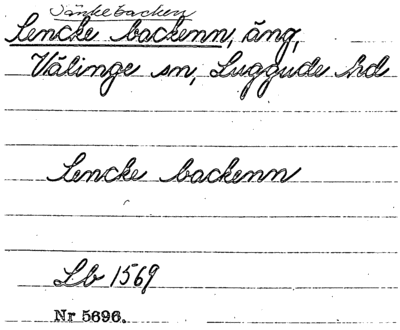 Sänkebacken
Lencke backenn, äng,
Välinge sn, Luggude hd
Lencke backenn
Lb 1569
Nr 5696.